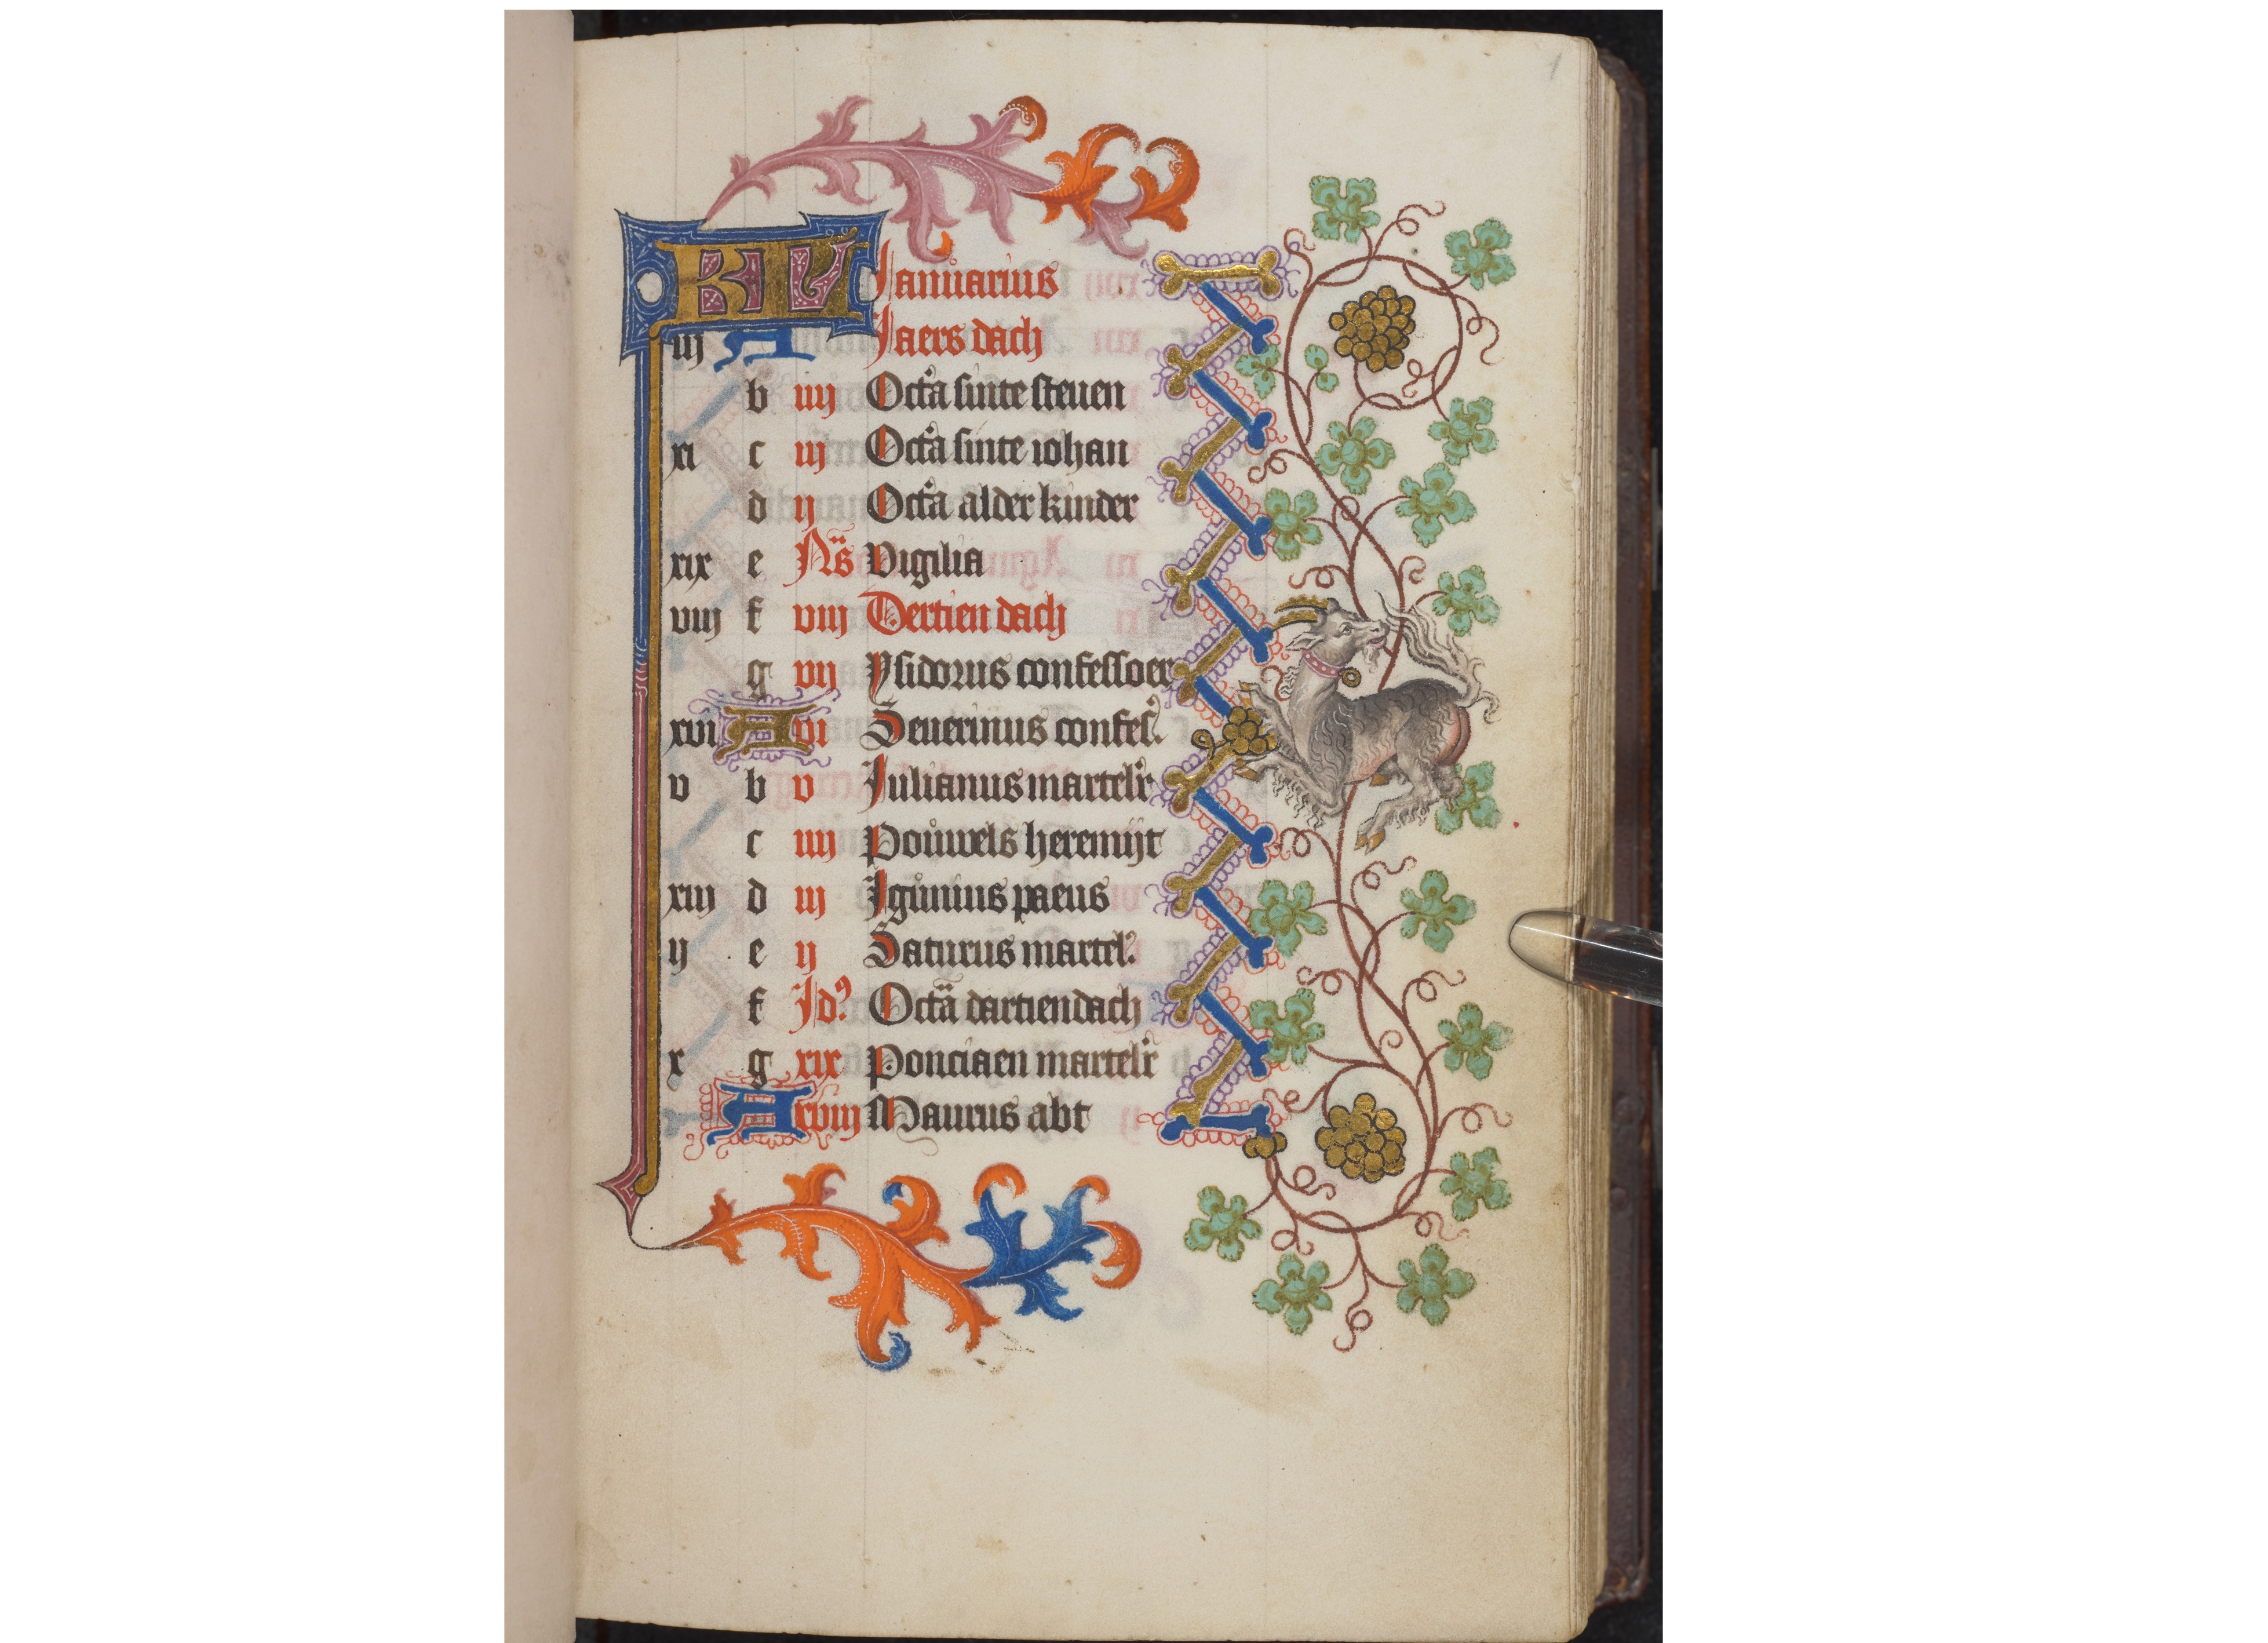 1
KL Januarius
iij A Jaers dach
b iiij Octa sinte steuen
xi c iij Octa sinte iohan
d ij Octa alder kinder
xix e Ns Vigilia
viij f viij Dertien dach
g vij Ysidorus confessoer
xvi A vi Seuerinus confes.
v b v Iulianus martelr
c iiij Pouwels heremijt
xiij d iij Igunius paeus
ij e ij Saturus martel.
f Id9 Octa dartiendach
x g xix Ponciaen martelr
A xviij Maurus abt